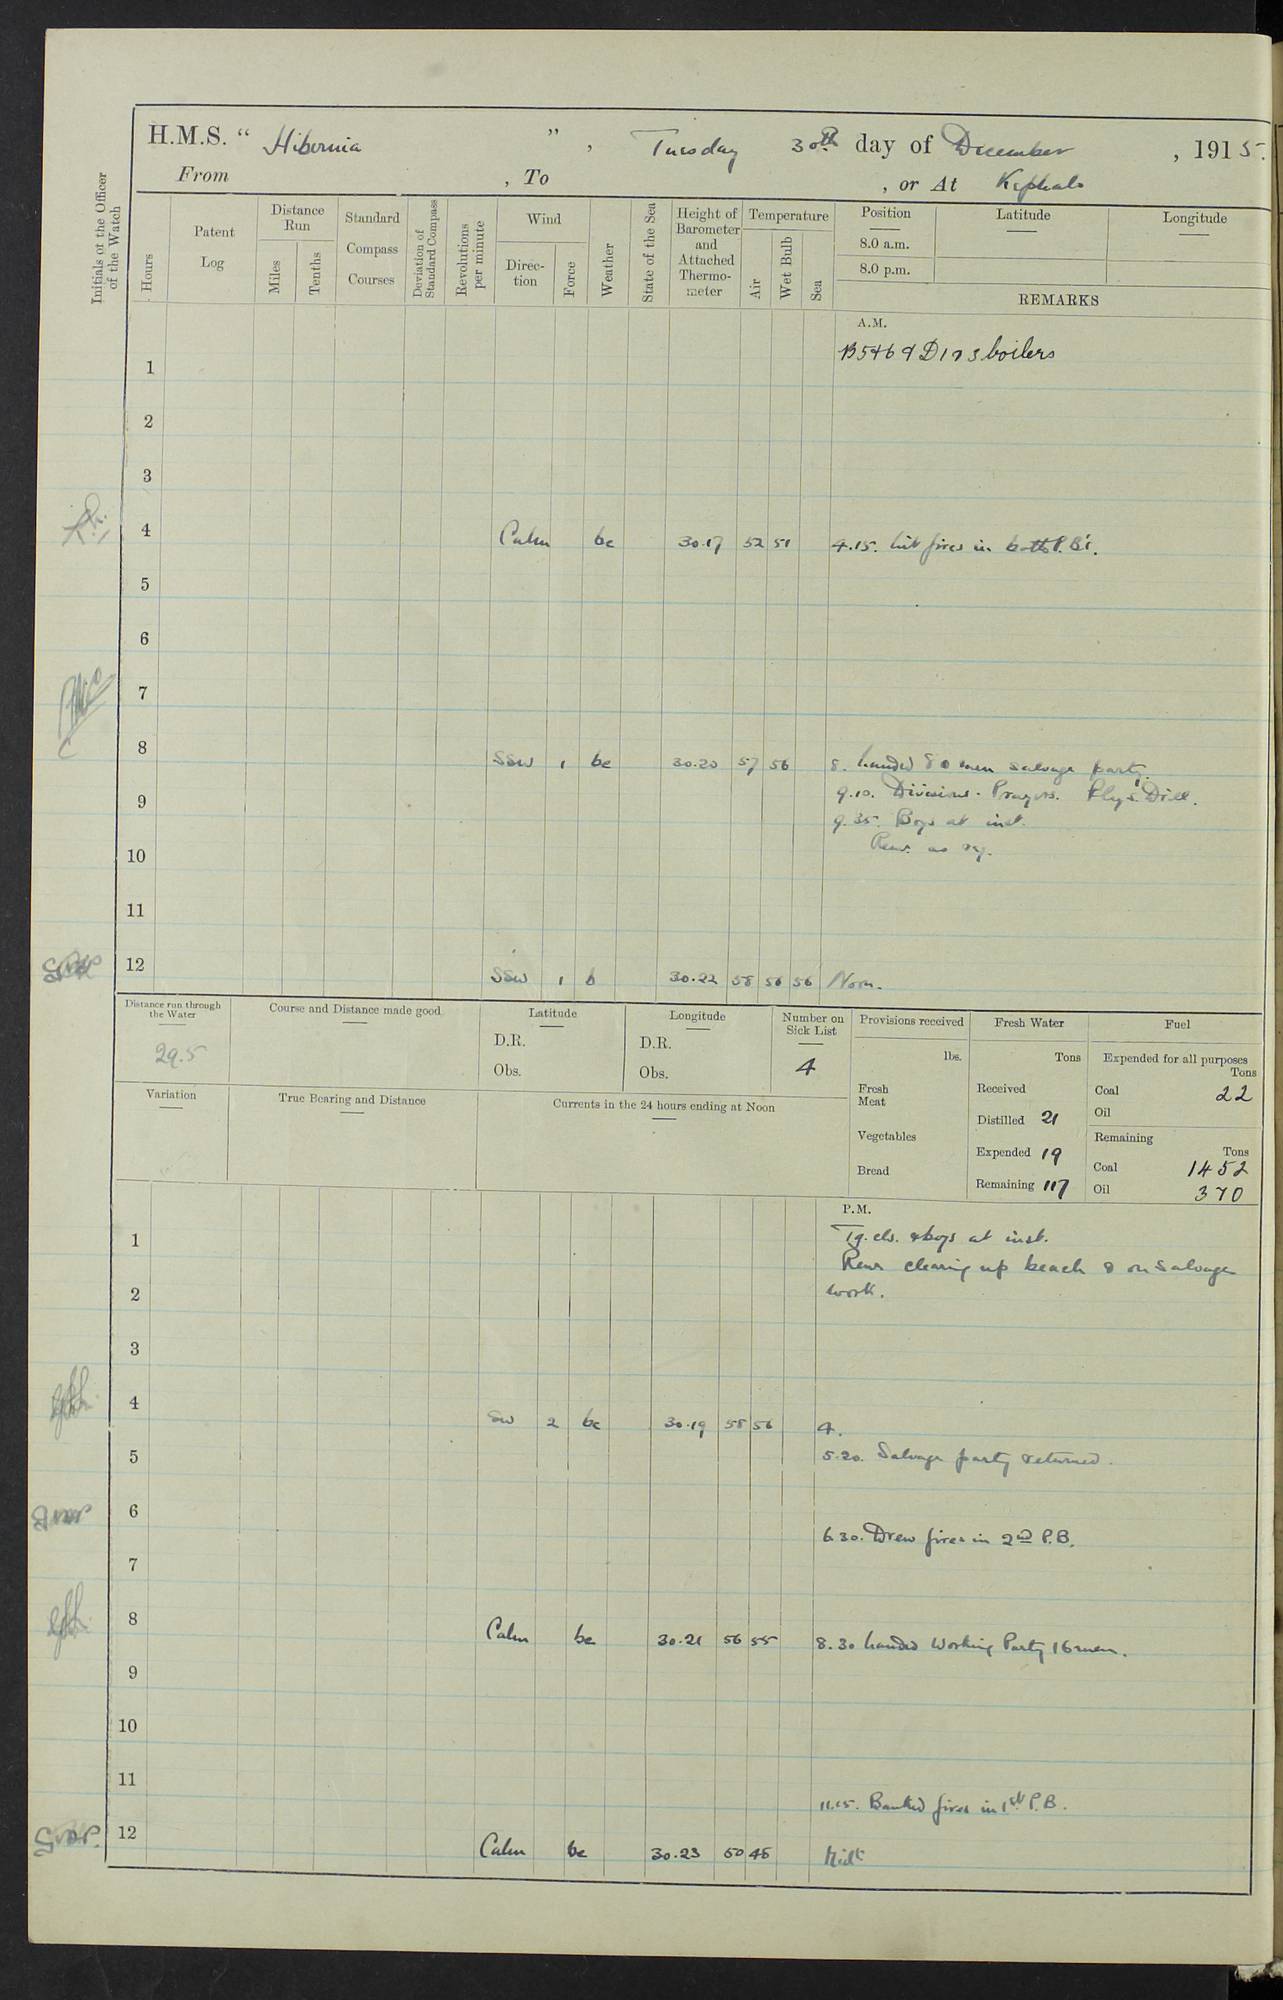 H.M.S. “ Hibernia ” , Tuesday 30th day of December , 1915.
From , To , or At Kephalo
Initials of the Officer of the Watch
Hours
Patent Log
Distance Run
Miles
Tenths
Standard Compass Courses
Deviation of Standard Compass
Revolutions per minute
Wind
Direction
Force
Weather
State of the Sea
Height of Barometer and Attached Thermometer
Temperature
Air
Wet Bulb
Sea
Position
Latitude
Longitude
8.0 a.m.
8.0 p.m.
REMARKS
A.M.
B5+6 & D1+3 boilers
1
2
3
4 Calm bc 30.17 52 51 4.15. Lit fires in both P.B's.
5
6
7
8 SSW 1 bc 30.20 57 56 8. Landed 80 men salvage party.
9 9.10. Divisions. Prayers. Phys. Drill.
9.35. Boys at inst.
10 Remr. as rq.
11
12 SSW 1 b 30.22 58 56 56 Noon.
Distance run through the Water
29.5
Course and Distance made good
Latitude
D.R.
Obs.
Longitude
D.R.
Obs.
Number on Sick List
4
Provisions received
lbs.
Fresh Meat
Vegetables
Bread
Fresh Water
Tons
Received
Distilled 21
Expended 19
Remaining 117
Fuel
Expended for all purposes
Tons
Coal 22
Oil
Remaining
Tons
Coal 1452
Oil 370
Variation
True Bearing and Distance
Currents in the 24 hours ending at Noon
P.M.
1 Tg. cls. & boys at inst.
Remr clearing up beach & on salvage
2 work.
3
4 SW 2 bc 30.19 58 56 4.
5 5.20. Salvage party returned.
6
6.30. Drew fires in 2nd P.B.
7
8 Calm bc 30.21 56 55 8.30 Landed Working Party 16 men.
9
10
11
11.15. Banked fires in 1st P.B.
12 Calm bc 30.23 50 48 Midt